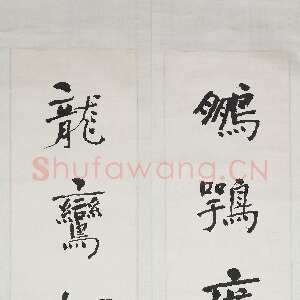 鵬鶚
龍鸞
Shufawang.CN